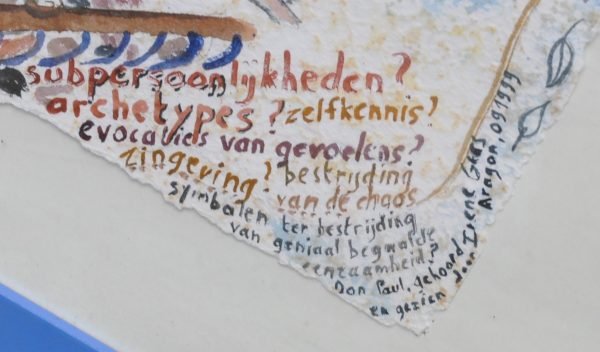 subpersoonlijkheden?
archetypes? zelfkennis?
evocaties van gevoelens?
zingeving? bestrijding
van de chaos
symbolen ter bestrijding
van geniaal begaafde
eenzaamheid?
Don Paul, gehoord
en gezien door Irene Gees
Aragon, 09.1999